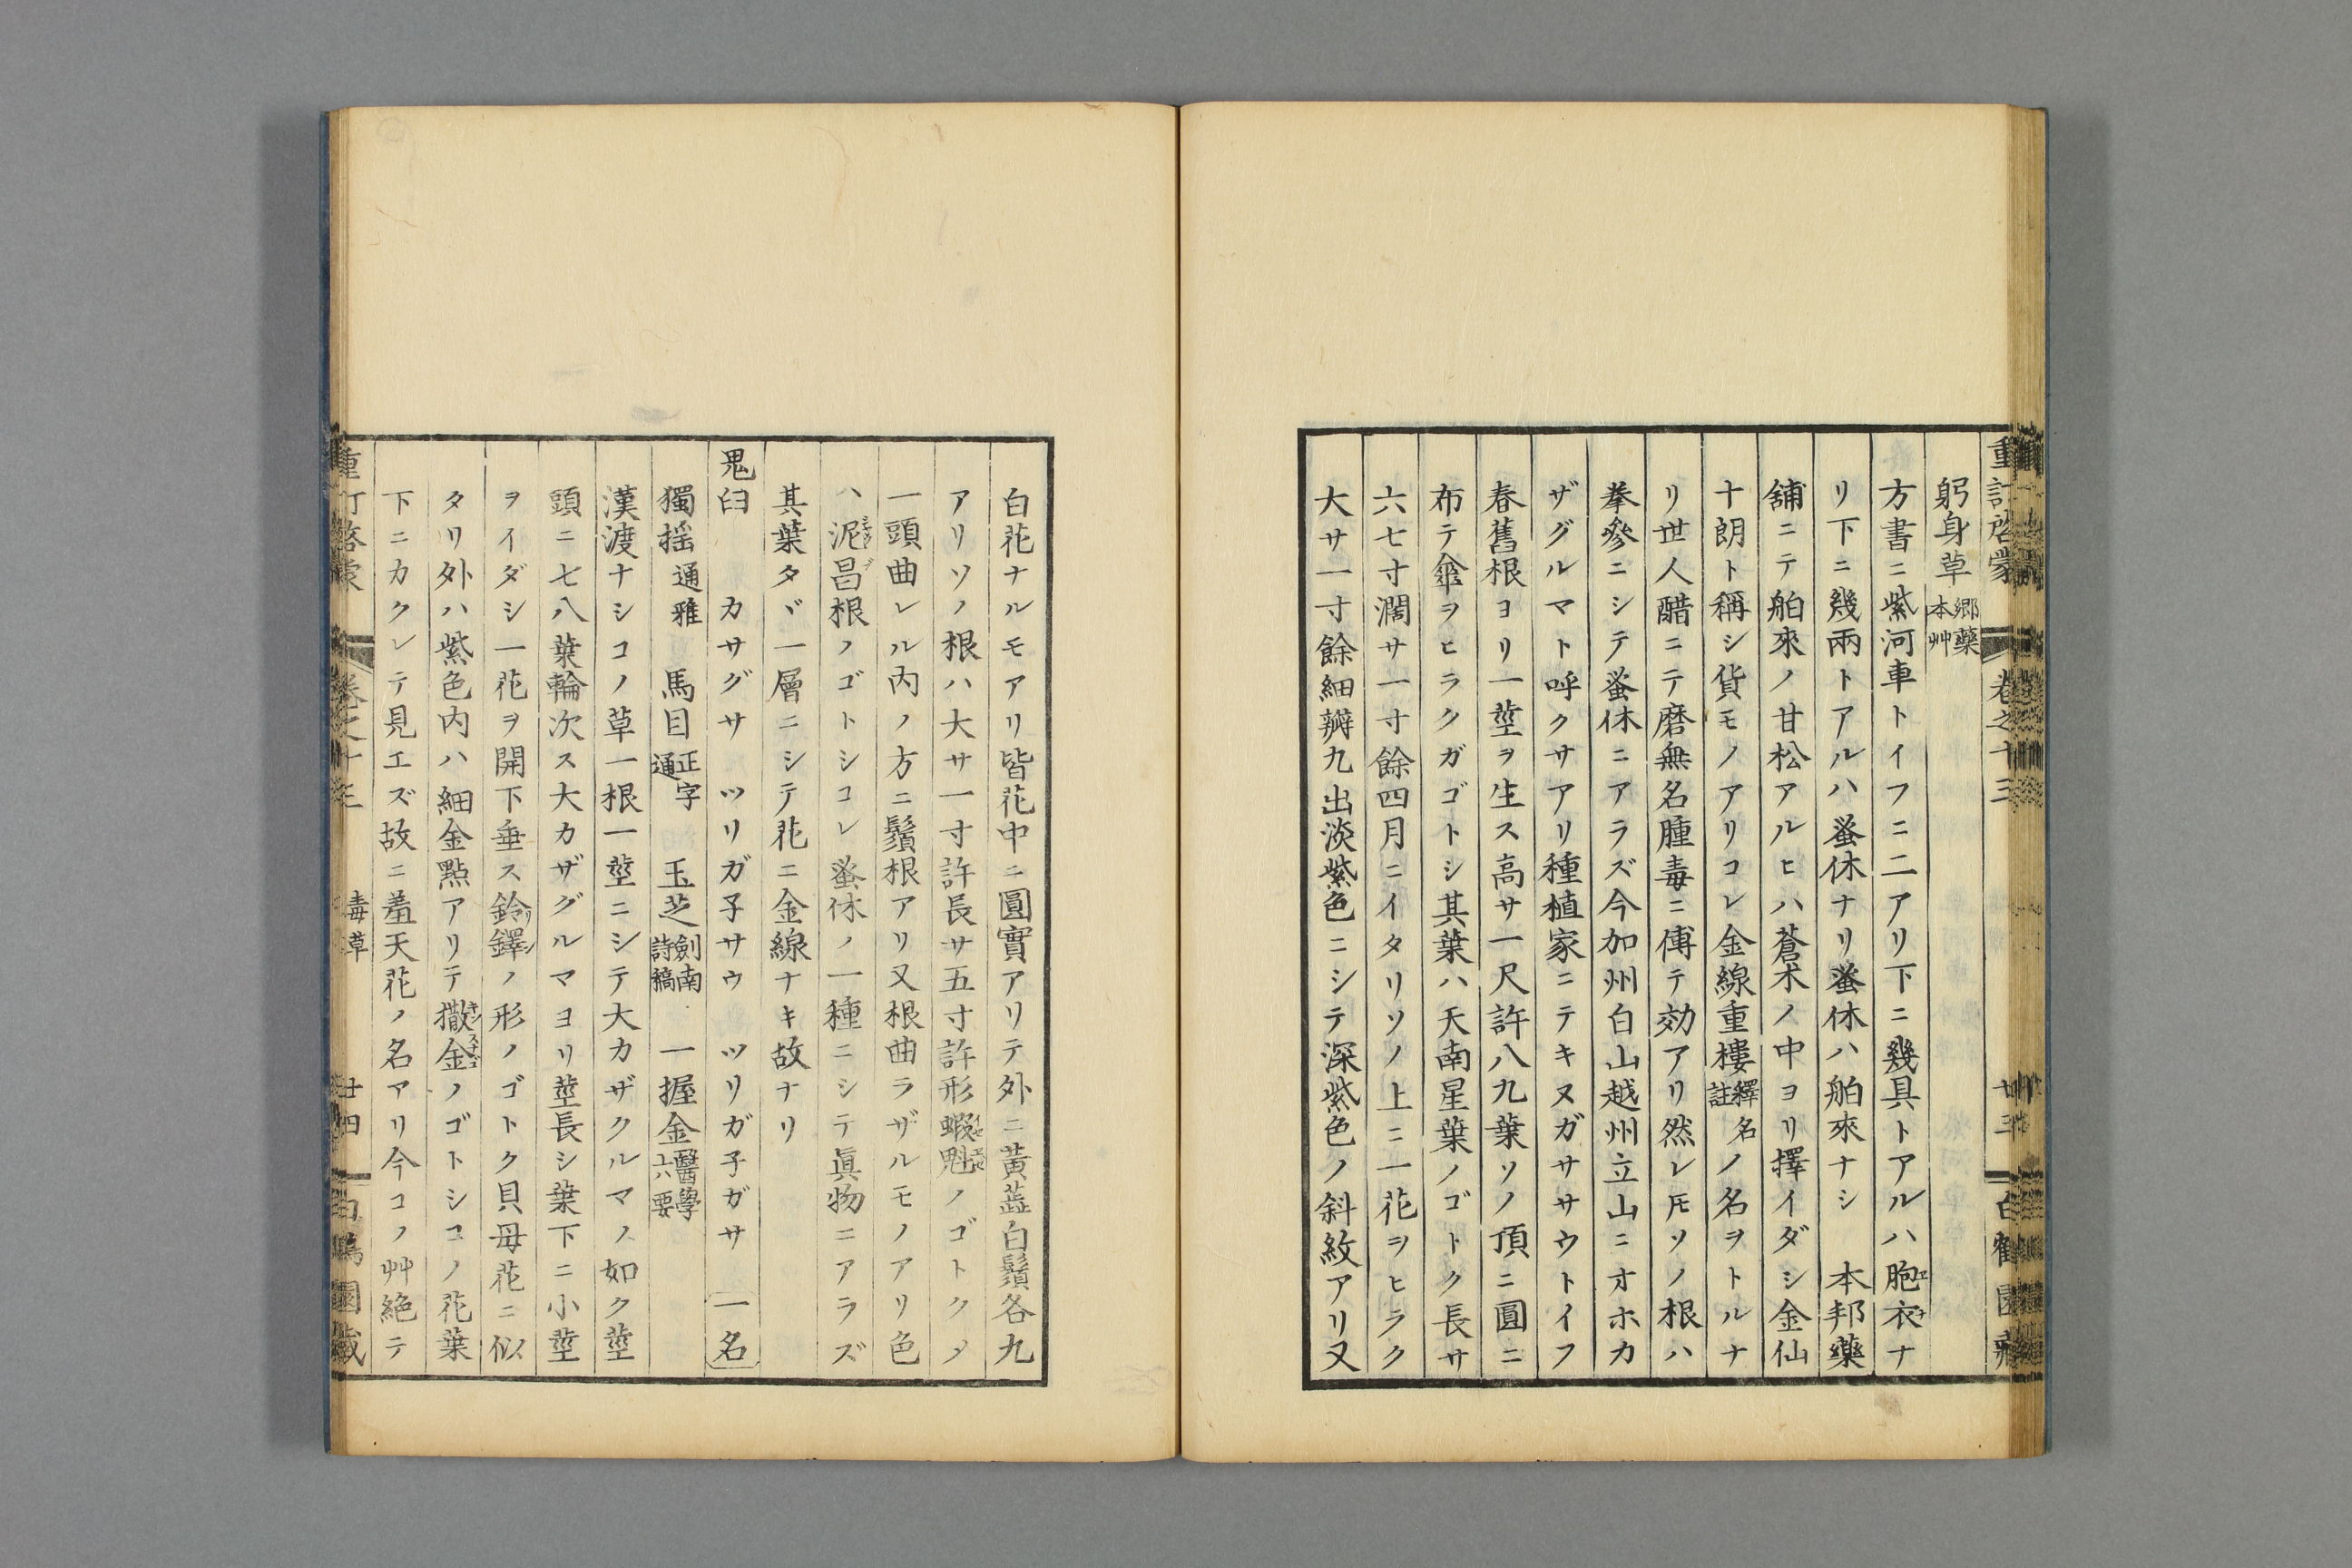 重訂啓蒙 卷之十三 廿三 白鶴園藏
躬身草 郷藥本艸
方書ニ紫河車トイフニ二アリ下ニ幾具トアルハ胞衣ナ
リ下ニ幾兩トアルハ蚤休ナリ蚤休ハ舶來ナシ 本邦藥
舖ニテ舶來ノ甘松アルヒハ蒼朮ノ中ヨリ擇イダシ金仙
十朗ト稱シ貨モノアリコレ金線重樓釋名註ノ名ヲトルナ
リ世人醋ニテ磨無名腫毒ニ傅テ効アリ然レ𪜈ソノ根ハ
拳參ニシテ蚤休ニアラズ今加州白山越州立山ニオホカ
ザグルマト呼クサアリ種植家ニテキヌガササウトイフ
春舊根ヨリ一莖ヲ生ス高サ一尺許八九葉ソノ頂ニ圓ニ
布テ傘ヲヒラクガゴトシ其葉ハ天南星葉ノゴトク長サ
六七寸濶サ一寸餘四月ニイタリソノ上ニ一花ヲヒラク
大サ一寸餘細瓣九出淡紫色ニシテ深紫色ノ斜紋アリ又
白花ナルモアリ皆花中ニ圓實アリテ外ニ黄蕋白鬚各九
アリソノ根ハ大サ一寸許長サ五寸許形蝦魁ノゴトクメ
一頭曲レル内ノ方ニ鬚根アリ又根曲ラザルモノアリ色
ハ泥昌根ノゴトシコレ蚤休ノ一種ニシテ眞物ニアラズ
其葉タヾ一層ニシテ花ニ金線ナキ故ナリ
鬼臼 カサグサ ツリガ子サウ ツリガ子ガサ 一名
獨揺通雅 馬目正字通 玉芝劍南詩稿 一握金醫學六要
漢渡ナシコノ草一根一莖ニシテ大カザクルマノ如ク莖
頭ニ七八葉輪次ス大カザグルマヨリ莖長シ葉下ニ小莖
ヲイダシ一花ヲ開下垂ス鈴鐸ノ形ノゴトク貝母花ニ似
タリ外ハ紫色内ハ細金點アリテ撒金ノゴトシコノ花葉
下ニカクレテ見エズ故ニ羞天花ノ名アリ今コノ艸絶テ
重訂啓蒙 卷之十三 毒草 廿四 白鶴園藏